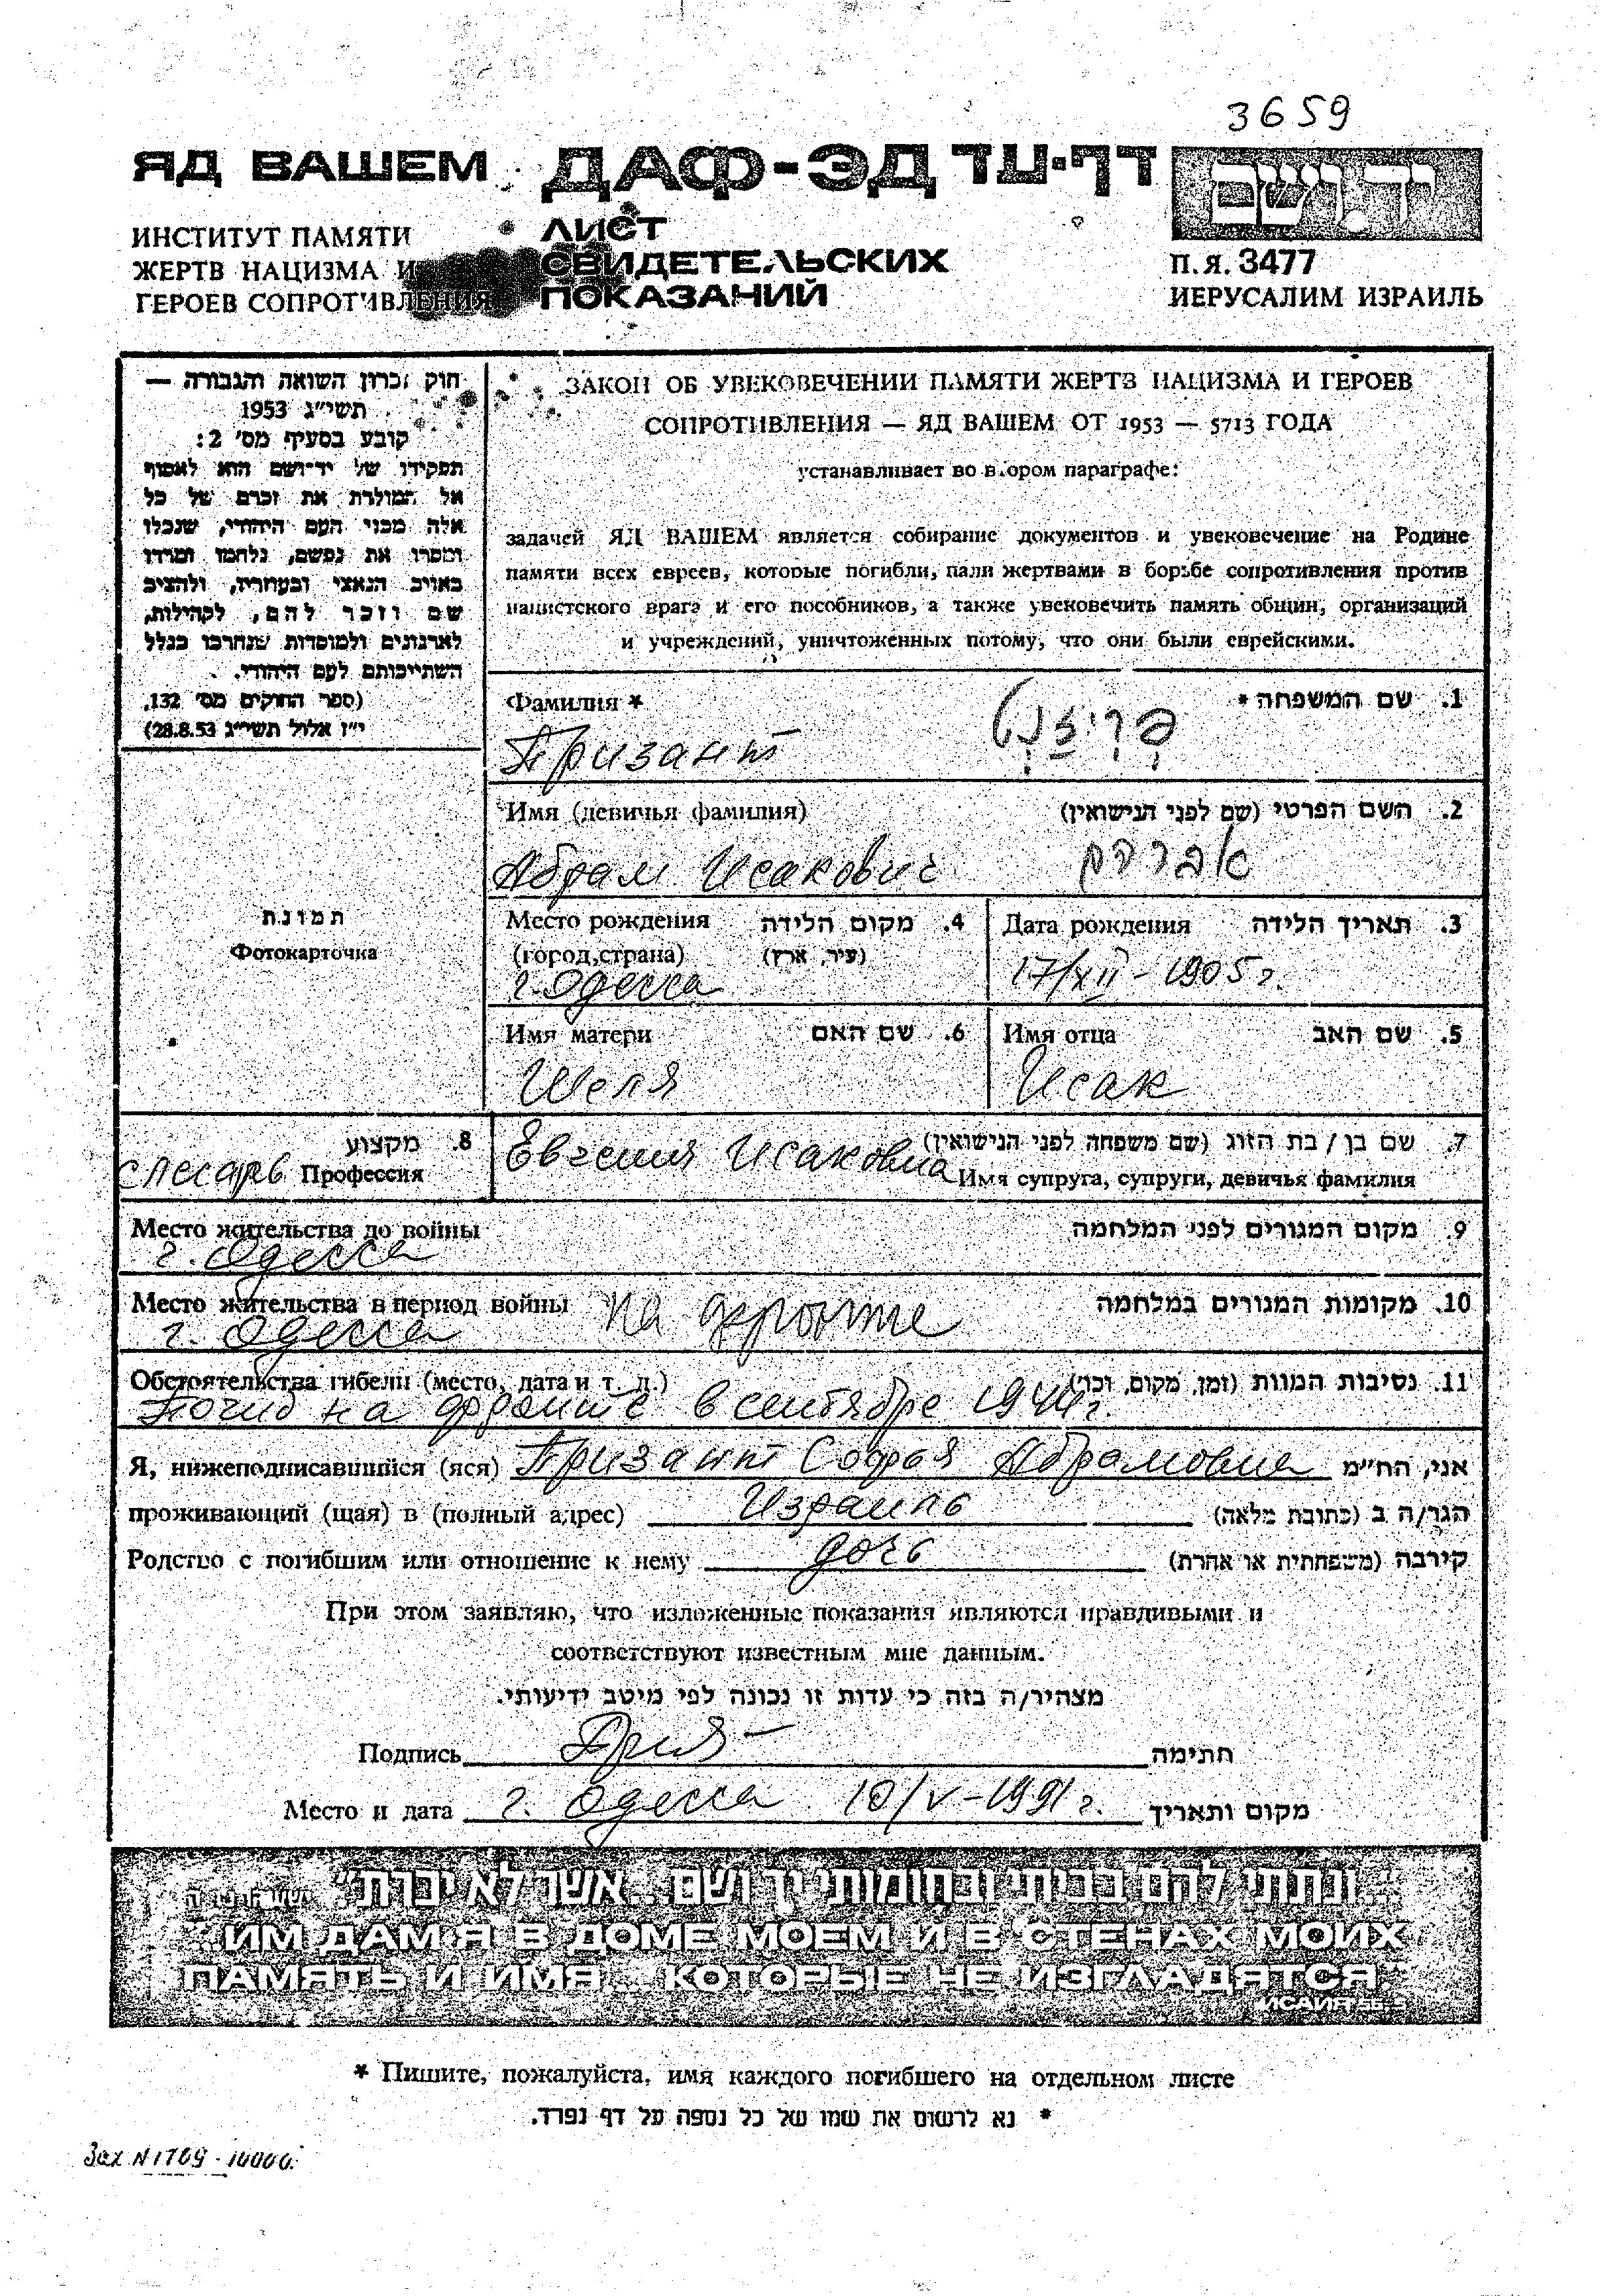 3659
ЯД ВАШЕМ ДАФ-ЭД דף-עד יד ושם
ИНСТИТУТ ПАМЯТИ
ЖЕРТВ НАЦИЗМА И
ГЕРОЕВ СОПРОТИВЛЕНИЯ
ЛИСТ
СВИДЕТЕЛЬСКИХ
ПОКАЗАНИЙ
П.Я. 3477
ИЕРУСАЛИМ ИЗРАИЛЬ
חוק זכרון השואה והגבורה —
תשי״ג 1953
קובע בסעיף מס׳ 2:
תפקידו של יד־ושם הוא לאסוף
אל המולדת את זכרם של כל
אלה מבני העם היהודי, שנפלו
ומסרו את נפשם, נלחמו ומרדו
באויב הנאצי ובעוזריו, ולהציב
שם וזכר להם, לקהילות,
לארגונים ולמוסדות שנחרבו בגלל
השתייכותם לעם היהודי.
(ספר החוקים מס׳ 132,
י״ז אלול תשי״ג 28.8.53)
ЗАКОН ОБ УВЕКОВЕЧЕНИИ ПАМЯТИ ЖЕРТВ НАЦИЗМА И ГЕРОЕВ
СОПРОТИВЛЕНИЯ — ЯД ВАШЕМ ОТ 1953 — 5713 ГОДА
устанавливает во втором параграфе:
задачей ЯД ВАШЕМ является собирание документов и увековечение на Родине
памяти всех евреев, которые погибли, пали жертвами в борьбе сопротивления против
нацистского врага и его пособников, а также увековечить память общин, организаций
и учреждений, уничтоженных потому, что они были еврейскими.
Фамилия * 1. שם המשפחה *
Призант פריזנט
Имя (девичья фамилия) 2. השם הפרטי (שם לפני הנישואין)
Абрам Исакович אברהם
תמונת
Фотокарточка
Место рождения 4. מקום הלידה
(город,страна) (עיר, ארץ)
г. Одесса
Дата рождения 3. תאריך הלידה
17/XII - 1905 г.
Имя матери 6. שם האם
Шеля
Имя отца 5. שם האב
Исак
8. מקצוע
слесарь Профессия
7. שם בן / בת הזוג (שם משפחה לפני הנישואין)
Евгения Исаковна Имя супруга, супруги, девичья фамилия
Место жительства до войны 9. מקום המגורים לפני המלחמה
г. Одесса
Место жительства в период войны 10. מקומות המגורים במלחמה
г. Одесса на фронте
Обстоятельства гибели (место, дата и т. д.) 11. נסיבות המוות (זמן, מקום, וכו׳)
Погиб на фронте в сентябре 1944 г.
Я, нижеподписавшийся (яся) Призант Софья Абрамовна אני, הח״מ
проживающий (щая) в (полный адрес) Израиль הגר/ה ב (כתובת מלאה)
Родство с погибшим или отношение к нему дочь קירבה (משפחתית או אחרת)
При этом заявляю, что изложенные показания являются правдивыми и
соответствуют известным мне данным.
מצהיר/ה בזה כי עדות זו נכונה לפי מיטב ידיעותי.
Подпись חתימה
Место и дата г. Одесса 10/V-1991 г. מקום ותאריך
״...ונתתי להם בביתי ובחומותי יד ושם...אשר לא יכרת״ ישעיהו נו ה
"...ИМ ДАМ Я В ДОМЕ МОЕМ И В СТЕНАХ МОИХ
ПАМЯТЬ И ИМЯ... КОТОРЫЕ НЕ ИЗГЛАДЯТСЯ"
ИСАИЯ 56:5
* Пишите, пожалуйста, имя каждого погибшего на отдельном листе
* נא לרשום את שמו של כל נספה על דף נפרד.
Зак N 1769 - 10000.